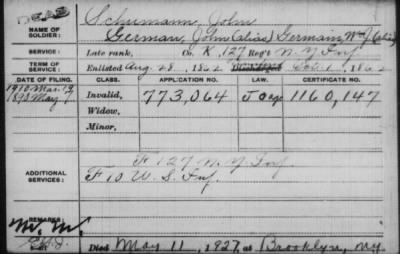 Dead
NAME OF SOLDIER: Schumann, John
German, John (alias) Germain, Wm J (alias)
SERVICE: Late rank, Co. K, 127 Reg't N.Y. Inf.
TERM OF SERVICE: Enlisted Aug 28, 1862 Discharged Oct 1, 1862
DATE OF FILING. CLASS. APPLICATION NO. LAW. CERTIFICATE NO.
1910 Mar. 19
1890 May Invalid, 773,064 1160,147
Widow,
Minor,
ADDITIONAL SERVICES: F 127 N.Y. Inf.
F 10 U.S. Inf.
REMARKS:
Died May 11, 1927, at Brooklyn, N.Y.